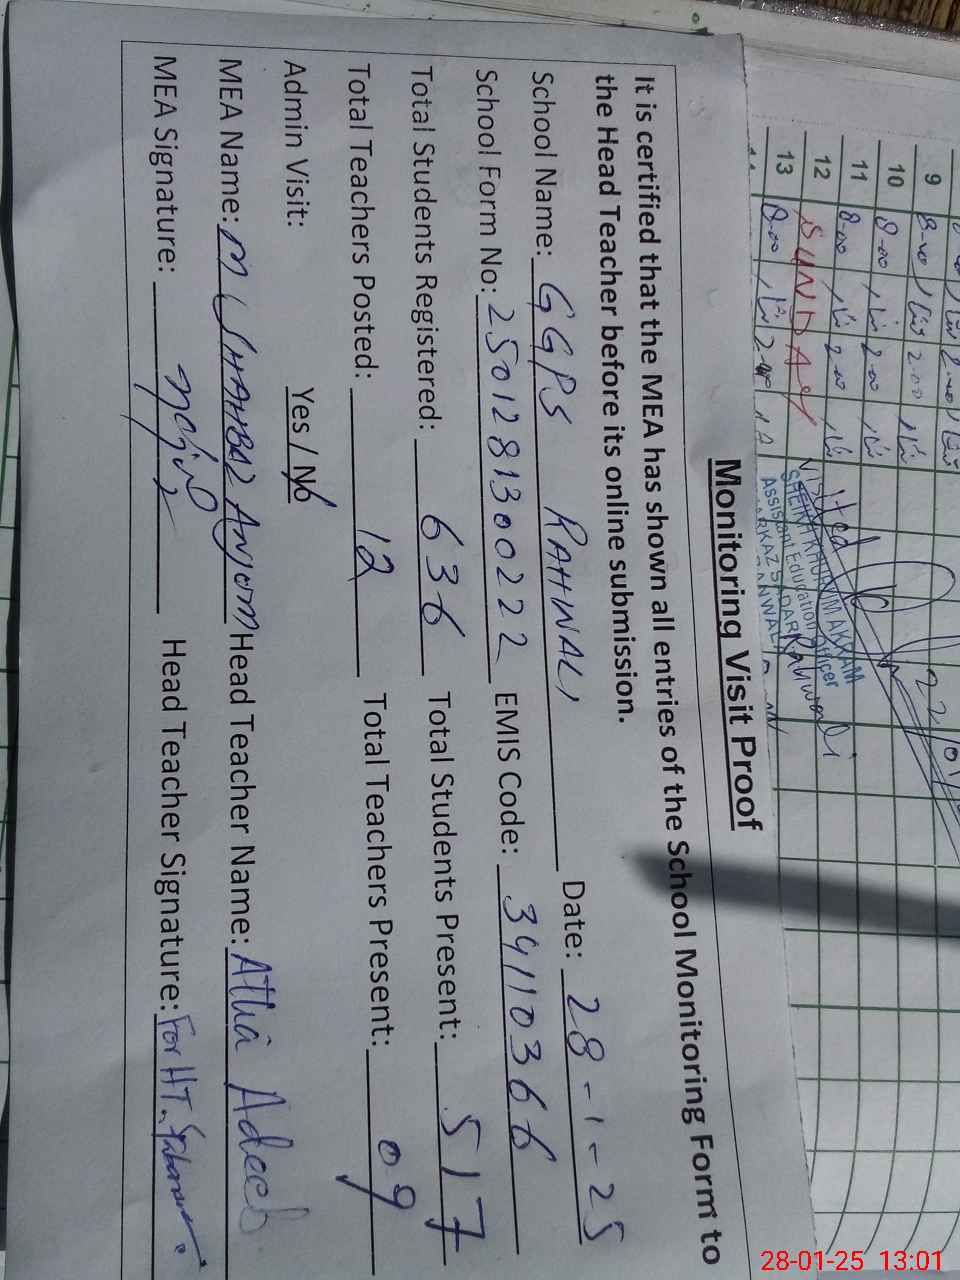 Monitoring Visit Proof
It is certified that the MEA has shown all entries of the School Monitoring Form to
the Head Teacher before its online submission.
School Name: GGPS RAHWALI Date: 28-1-25
School Form No: 2501281300222 EMIS Code: 34110366
Total Students Registered: 636 Total Students Present: 517
Total Teachers Posted: 12 Total Teachers Present: 09
Admin Visit: Yes / No
MEA Name: M SHAHBAZ Anjum Head Teacher Name: Athar Adeeb
MEA Signature: Head Teacher Signature: For HT.
9 8-00 2-00
10 8-00 2-00
11 8-00 2-00
12 SUNDAY
13 8-00
Visited
Assistant Education Officer
28-01-25 13:01